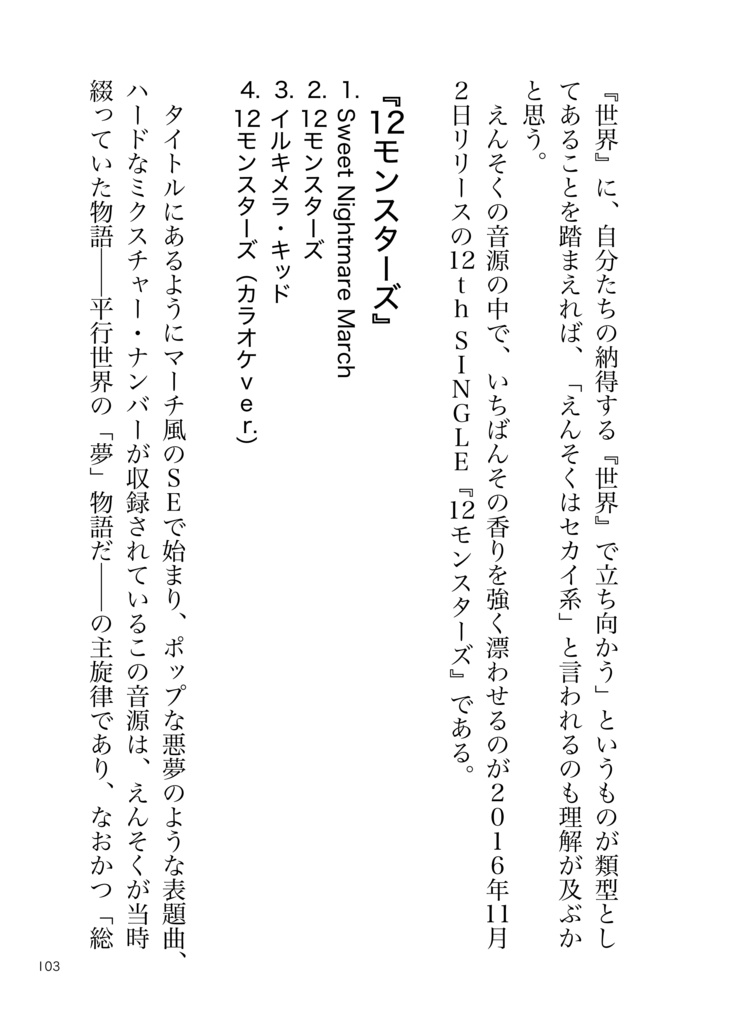 『世界』に、自分たちの納得する『世界』で立ち向かう」というものが類型とし
てあることを踏まえれば、「えんそくはセカイ系」と言われるのも理解が及ぶか
と思う。
えんそくの音源の中で、いちばんその香りを強く漂わせるのが２０１６年11月
２日リリースの12ｔｈ ＳＩＮＧＬＥ『12モンスターズ』である。
『12モンスターズ』
1. Sweet Nightmare March
2. 12モンスターズ
3. イルキメラ・キッド
4. 12モンスターズ（カラオケｖｅｒ.）
タイトルにあるようにマーチ風のＳＥで始まり、ポップな悪夢のような表題曲、
ハードなミクスチャー・ナンバーが収録されているこの音源は、えんそくが当時
綴っていた物語——平行世界の「夢」物語だ——の主旋律であり、なおかつ「総
103